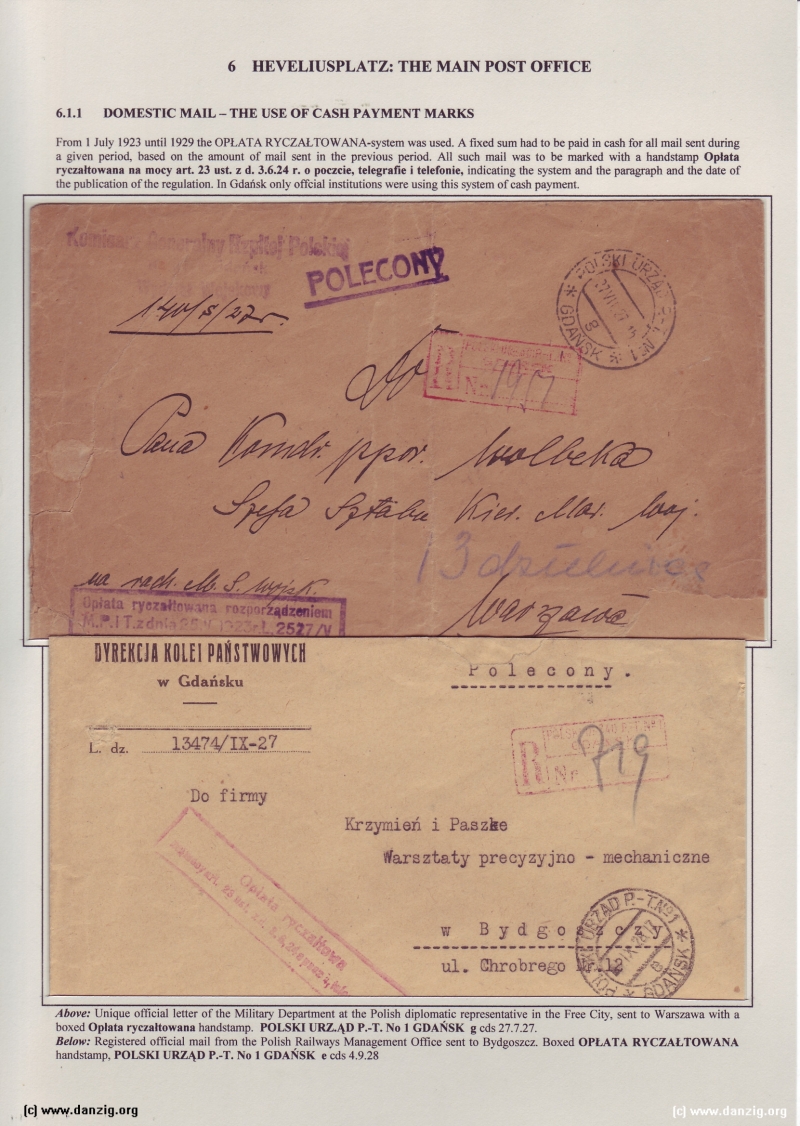 6 HEVELIUSPLATZ: THE MAIN POST OFFICE
6.1.1 DOMESTIC MAIL – THE USE OF CASH PAYMENT MARKS
From 1 July 1923 until 1929 the OPŁATA RYCZAŁTOWANA-system was used. A fixed sum had to be paid in cash for all mail sent during
a given period, based on the amount of mail sent in the previous period. All such mail was to be marked with a handstamp Opłata
ryczałtowana na mocy art. 23 ust. z d. 3.6.24 r. o poczcie, telegrafie i telefonie, indicating the system and the paragraph and the date of
the publication of the regulation. In Gdańsk only offcial institutions were using this system of cash payment.
Komisarz Generalny Rzplitej Polskiej
POLECONY
POLSKI URZĄD P.-T. №1
* GDAŃSK *
140/S/27r.
Do
R
No
Pana Komdr. ppor. Wolbeka
Szefa Sztabu Kier. Mar. Woj.
13 dzielnica
na rach. M. S. Wojsk.
Warszawa
Opłata ryczałtowana rozporządzeniem
M.P.i T. z dnia 25.V.1923 r. L. 2527/V
DYREKCJA KOLEI PAŃSTWOWYCH
w Gdańsku
Polecony.
L. dz. 13474/IX-27
R
Nr 719
Do firmy
Krzymień i Paszke
Warsztaty precyzyjno - mechaniczne
Opłata ryczałtowa
w Bydgoszczy
ul. Chrobrego Nr. 12
POLSKI URZĄD P.-T. №1
* GDAŃSK *
Above: Unique official letter of the Military Department at the Polish diplomatic representative in the Free City, sent to Warszawa with a
boxed Opłata ryczałtowana handstamp. POLSKI URZ.ĄD P.-T. No 1 GDAŃSK g cds 27.7.27.
Below: Registered official mail from the Polish Railways Management Office sent to Bydgoszcz. Boxed OPŁATA RYCZAŁTOWANA
handstamp, POLSKI URZĄD P.-T. No 1 GDAŃSK e cds 4.9.28
(c) www.danzig.org
(c) www.danzig.org